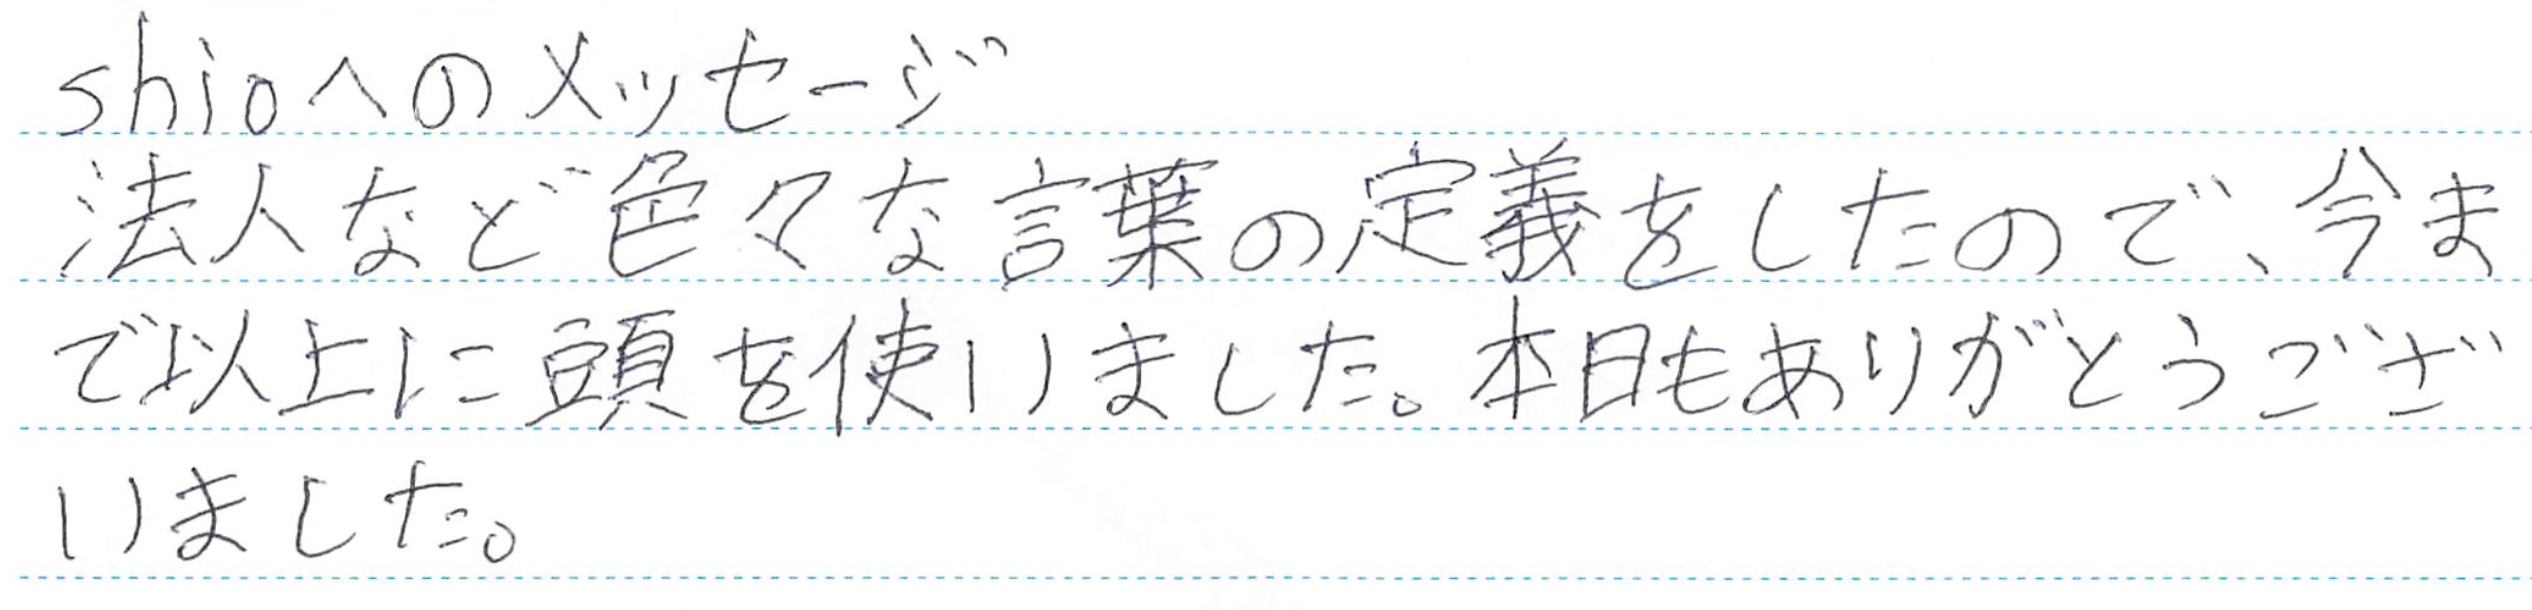 shioへのメッセージ
法人など色々な言葉の定義をしたので、今ま
で以上に頭を使いました。本日もありがとうござ
いました。